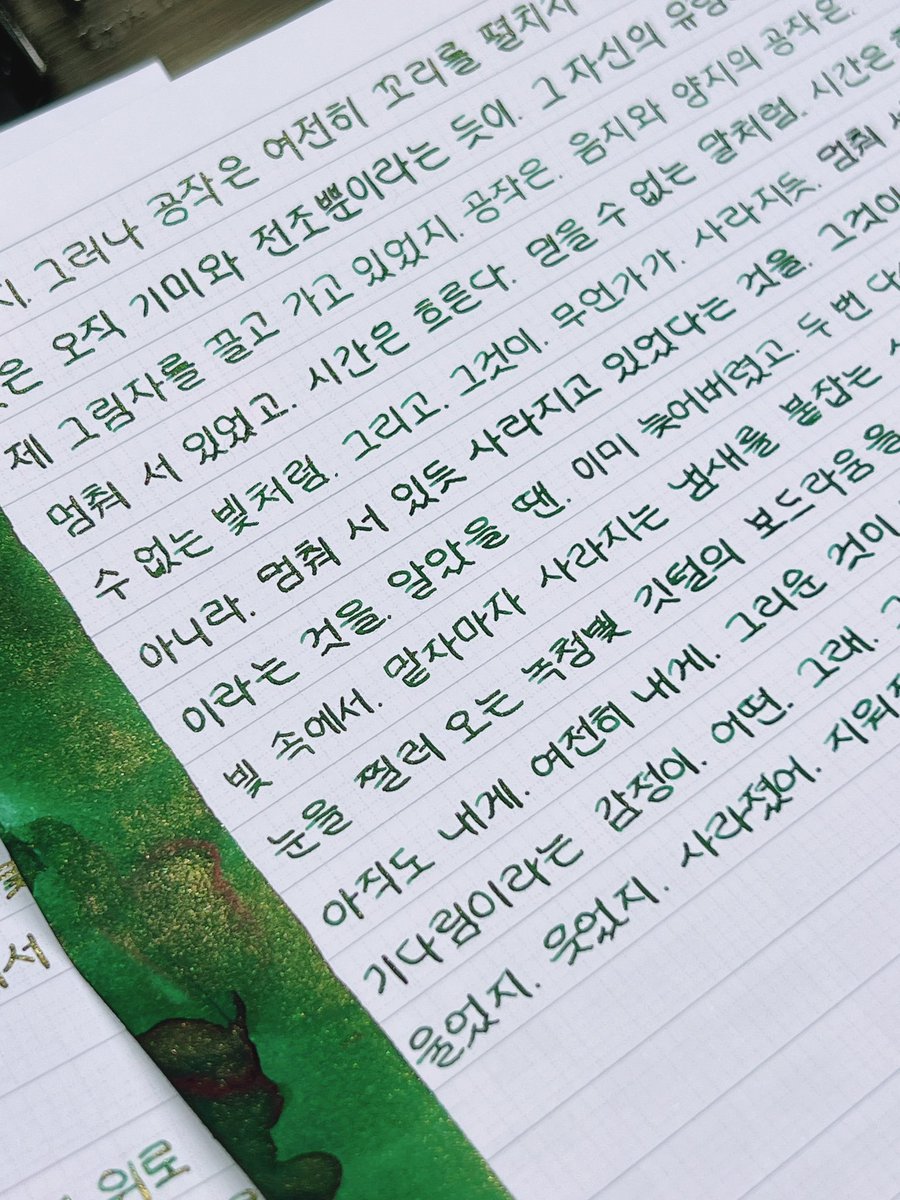 지. 그러나 공작은 여전히 꼬리를 펼치지
은 오직 기미와 전조뿐이라는 듯이. 그 자신의
제 그림자를 끌고 가고 있었지. 공작은. 음지와 양지의 공작은.
멈춰 서 있었고. 시간은 흐른다. 믿을 수 없는 말처럼. 시간은
수 없는 빛처럼. 그리고. 그것이. 무언가가. 사라지듯. 멈춰
아니라. 멈춰 서 있듯 사라지고 있었다는 것을. 그것이
이라는 것을. 알았을 땐. 이미 늦어버렸고. 두 번
빛 속에서. 맡자마자 사라지는 냄새를 붙잡는
눈을 찔러 오는 녹청빛 깃털의 보드라움을
아직도 내게. 여전히 내게. 그리운 것이
기다림이라는 감정이. 어떤. 그래.
울었지. 웃었지. 사라졌어.
서
위로